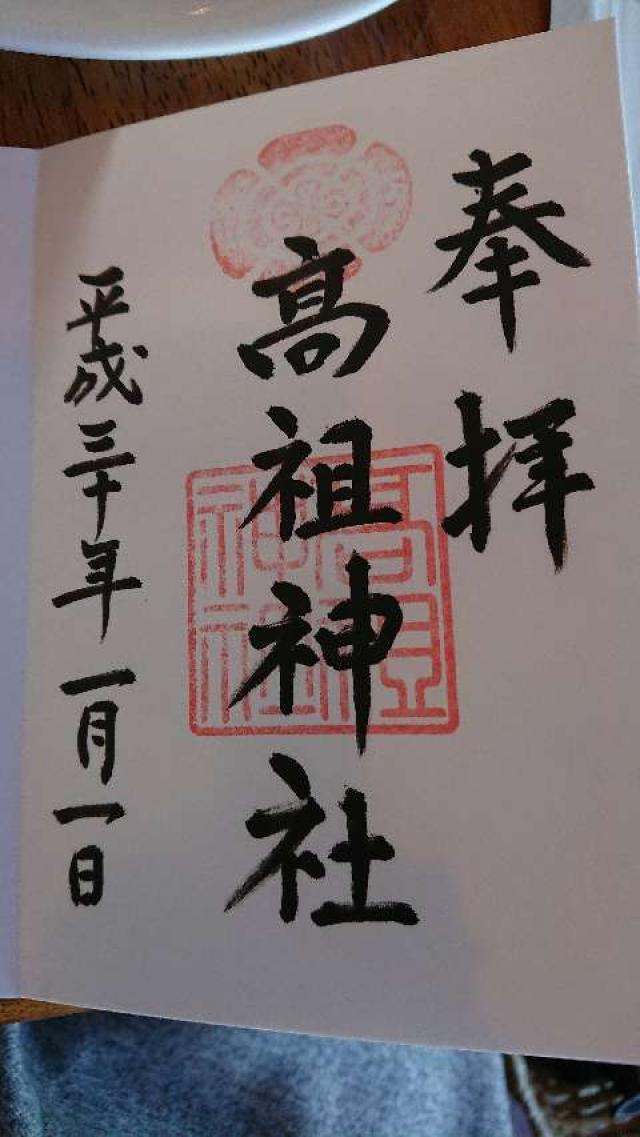 奉拝
高祖神社
高祖神社
平成三十年一月一日